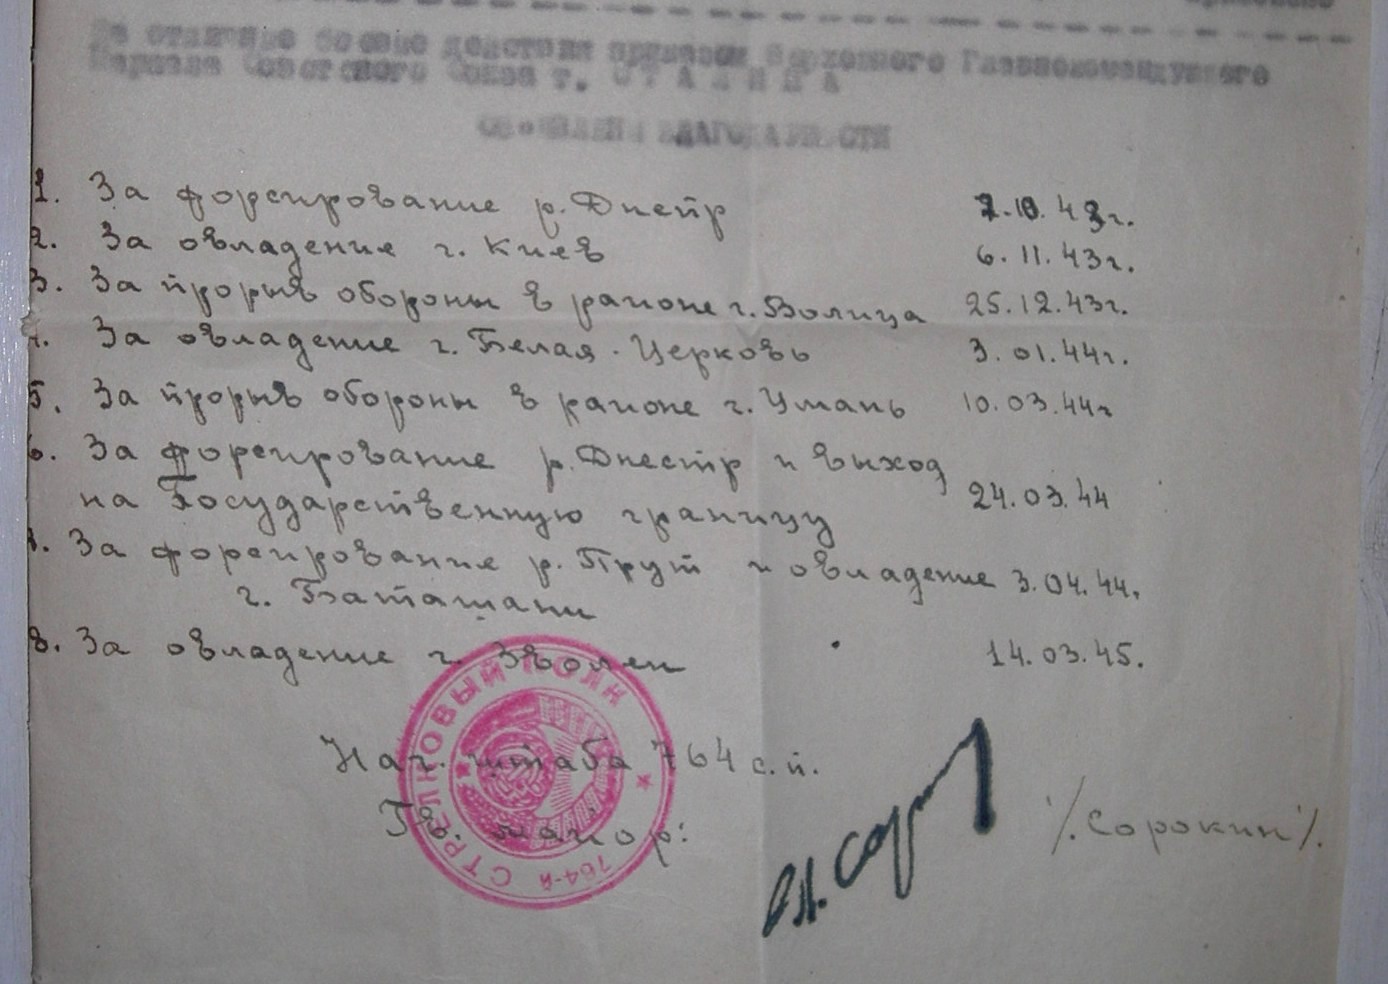 За отличные боевые действия приказом Верховного Главнокомандующего
Маршала Советского Союза т. СТАЛИНА
ОБ‘ЯВЛЕНЫ БЛАГОДАРНОСТИ
1. За форсирование р. Днепр 7.10.43г.
2. За овладение г. Киев 6.11.43г.
3. За прорыв обороны в районе г. Волица 25.12.43г.
4. За овладение г. Белая-Церковь 3.01.44г.
5. За прорыв обороны в районе г. Умань 10.03.44г
6. За форсирование р. Днестр и выход
на Государственную границу 24.03.44
7. За форсирование р. Прут и овладение 3.04.44.
г. Баташани
8. За овладение г. Зволен 14.03.45.
Нач. штаба 764 с.п.
Гв. майор: /.Сорокин/.
764-й СТРЕЛКОВЫЙ ПОЛК